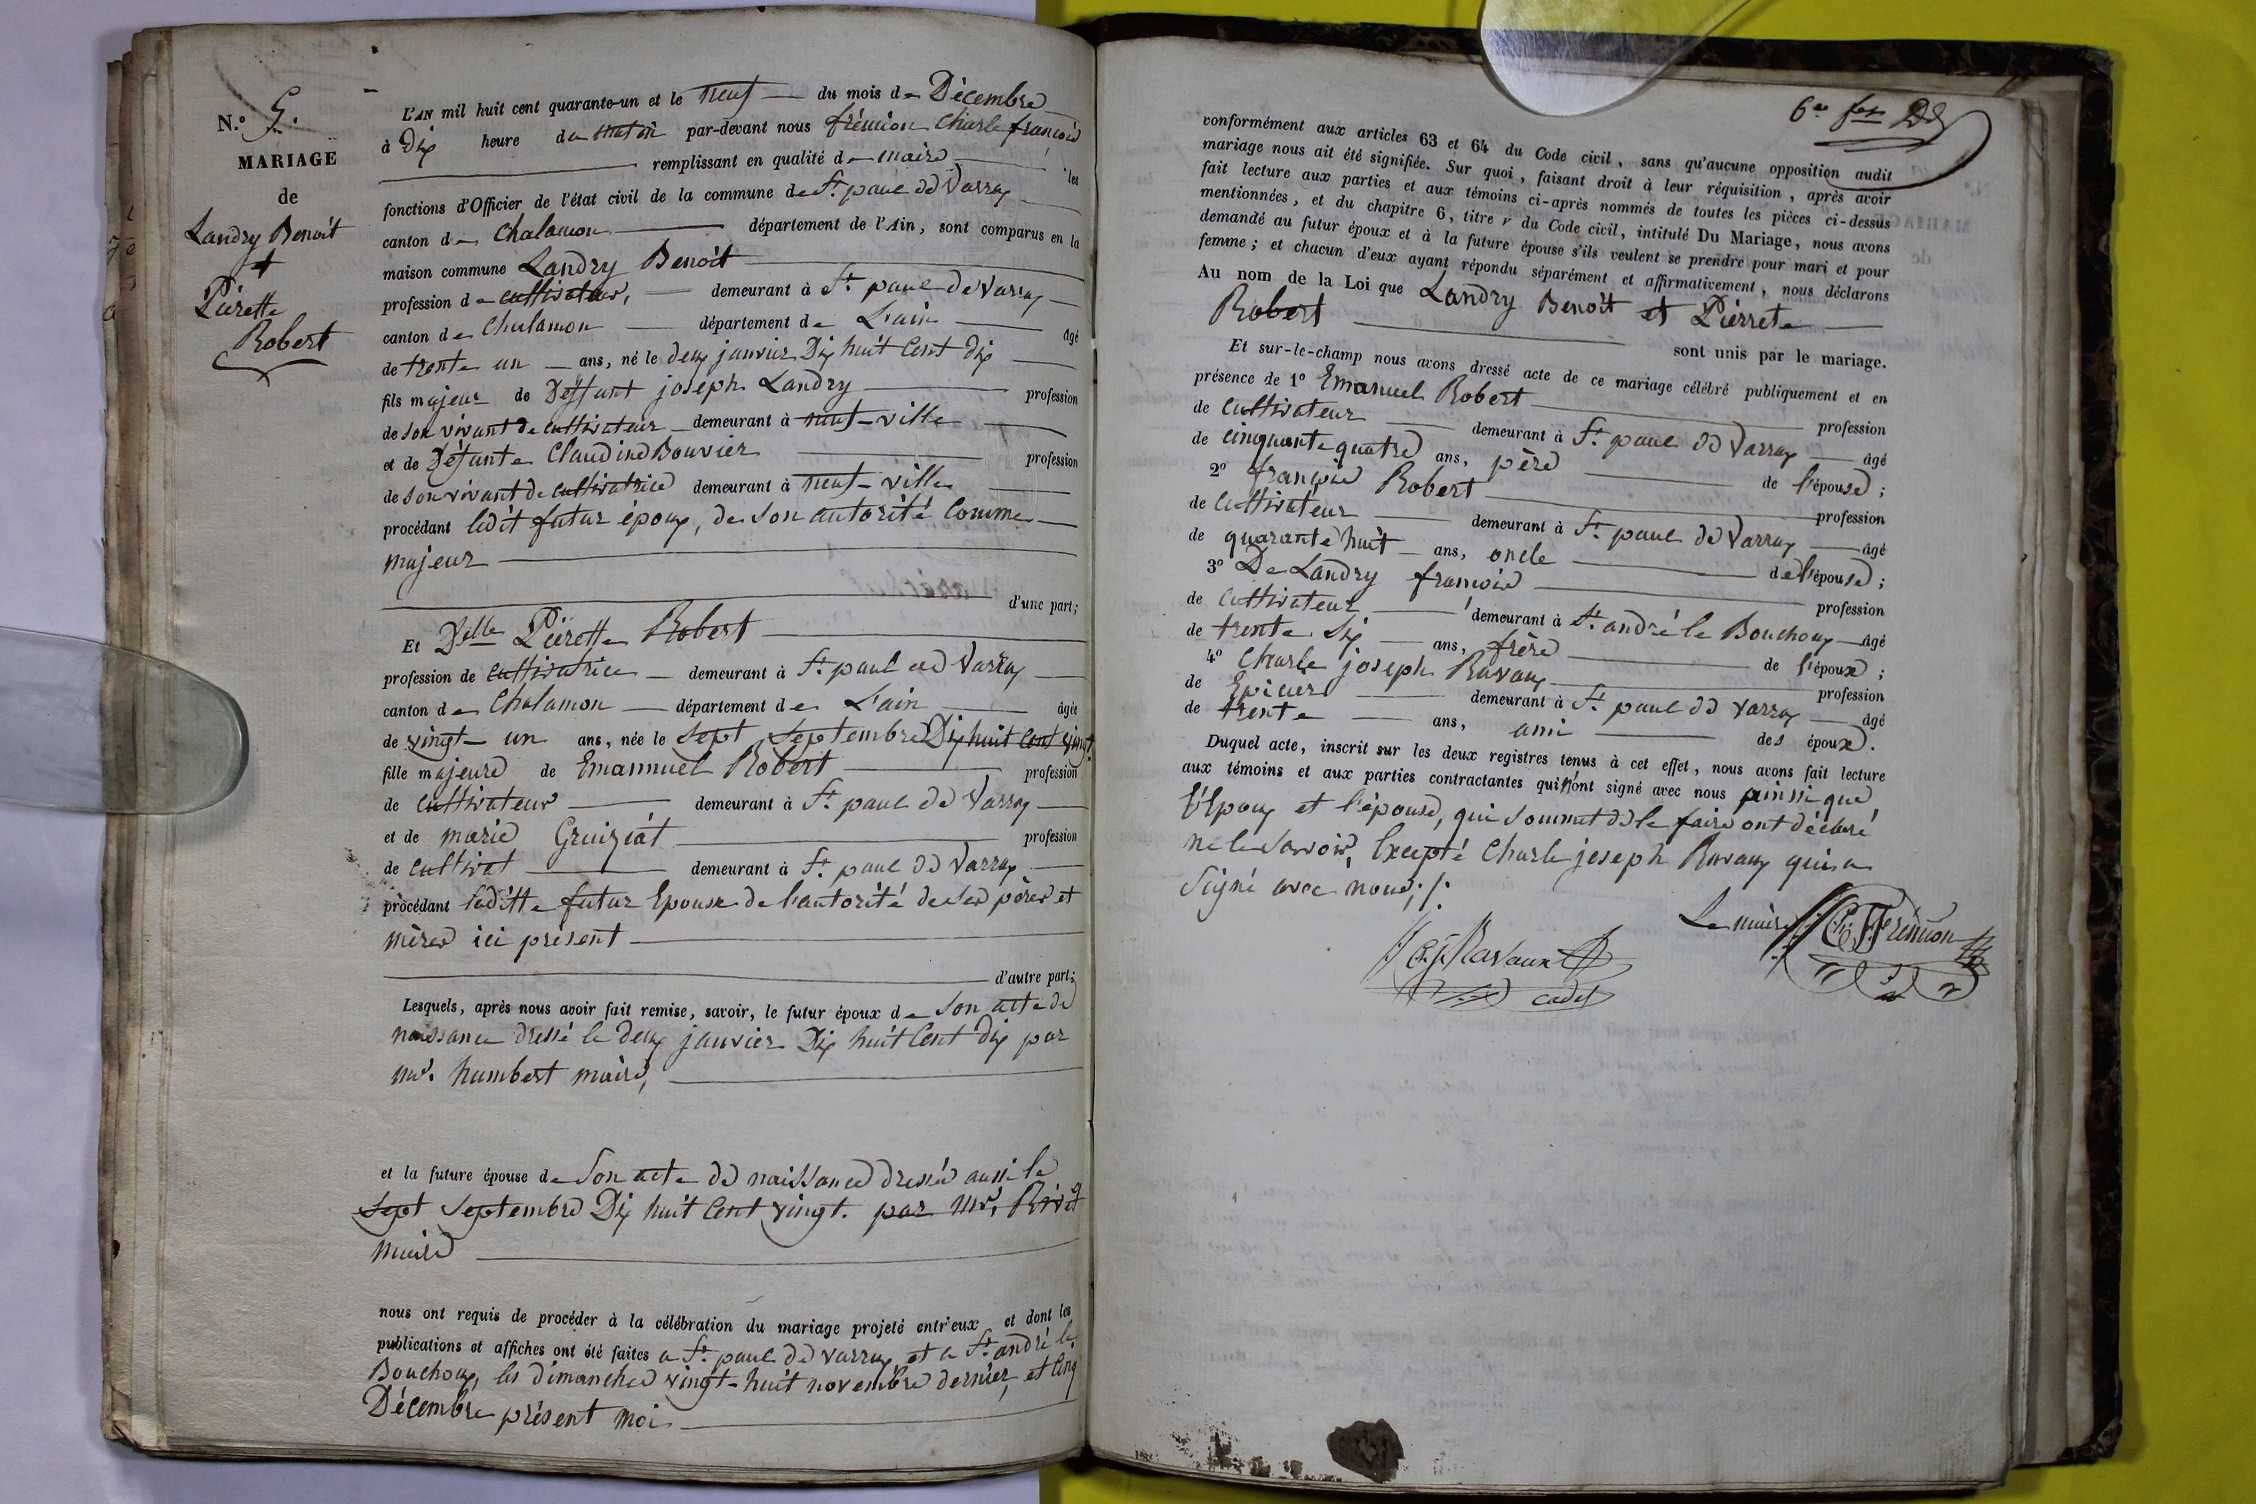 N.° 5.
MARIAGE
de
Landry Benoît
+
Pierette
Robert
L'AN mil huit cent quarante-un et le neuf du mois de Décembre
à dix heure du matin par-devant nous frémion Charle françois
remplissant en qualité de maire les
fonctions d'Officier de l'état civil de la commune de St. paul de Varray
canton de Chalamon département de l'Ain, sont comparus en la
maison commune Landry Benoît
profession de cultivateur, demeurant à St. paul de Varray
canton de Chalamon département de L'ain âgé
de trente un ans, né le deux janvier Dix huit Cent dix
fils majeur de Deffunt joseph Landry profession
de son vivant de cultivateur demeurant à neuf-ville
et de Défunte Claudine Bouvier profession
de son vivant de cultivatrice demeurant à neuf-ville
procédant ledit futur époux, de son autorité Comme
majeur
d'une part;
Et Dlle Pierette Robert
profession de cultivatrice demeurant à St. paul de Varray
canton de Chalamon département de L'ain âgée
de vingt-un ans, née le sept septembre Dix huit Cent vingt
fille majeure de Emannuel Robert profession
de cultivateur demeurant à St. paul de Varray
et de marie Gruiziat profession
de cultivat demeurant à St. paul de Varray
procédant laditte futur Epouse de l'autorité de ses pères et
mères ici présent
d'autre part;
Lesquels, après nous avoir fait remise, savoir, le futur époux de son acte de
naissance dressé le deux janvier Dix huit Cent dix par
mr. humbert maire,
et la future épouse de son acte de naissance dressée aussi le
sept septembre Dix huit Cent vingt. par mr. Rivet
maire
nous ont requis de procéder à la célébration du mariage projeté entr'eux et dont les
publications et affiches ont été faites a St. paul de varray et a St. andré le
Bouchoux, les dimanches vingt-huit novembre dernier, et Cinq
Décembre présent moi
6e
vonformément aux articles 63 et 64 du Code civil, sans qu'aucune opposition audit
mariage nous ait été signifiée. Sur quoi, faisant droit à leur réquisition, après avoir
fait lecture aux parties et aux témoins ci-après nommés de toutes les pièces ci-dessus
mentionnées, et du chapitre 6, titre v du Code civil, intitulé Du Mariage, nous avons
demandé au futur époux et à la future épouse s'ils veulent se prendre pour mari et pour
femme; et chacun d'eux ayant répondu séparément et affirmativement, nous déclarons
Au nom de la Loi que Landry Benoît et Pierrete
Robert
sont unis par le mariage.
Et sur-le-champ nous avons dressé acte de ce mariage célébré publiquement et en
présence de 1° Emanuel Robert profession
de cultivateur demeurant à St. paul de Varray âgé
de cinquante quatre ans, père de l'épouse;
2° françois Robert profession
de cultivateur demeurant à St. paul de Varray âgé
de quarante huit ans, oncle de l'épouse;
3° De Landry francois profession
de cultivateur demeurant à St. andré le Bouchoux âgé
de trente six ans, frère de l'époux;
4° Charle joseph Ravaux profession
de Epicier demeurant à St. paul de Varray âgé
de trente ans, ami des époux.
Duquel acte, inscrit sur les deux registres tenus à cet effet, nous avons fait lecture
aux témoins et aux parties contractantes qui n'ont signé avec nous ainsi que
l'Epoux et l'épouse, qui sommet de le faire ont déclaré
ne le savoir, Excepté Charle joseph Ravaux qui a
Signé avec nous;/.
Le maire Ch. F. Frémion
C. j. Ravaux
cadet